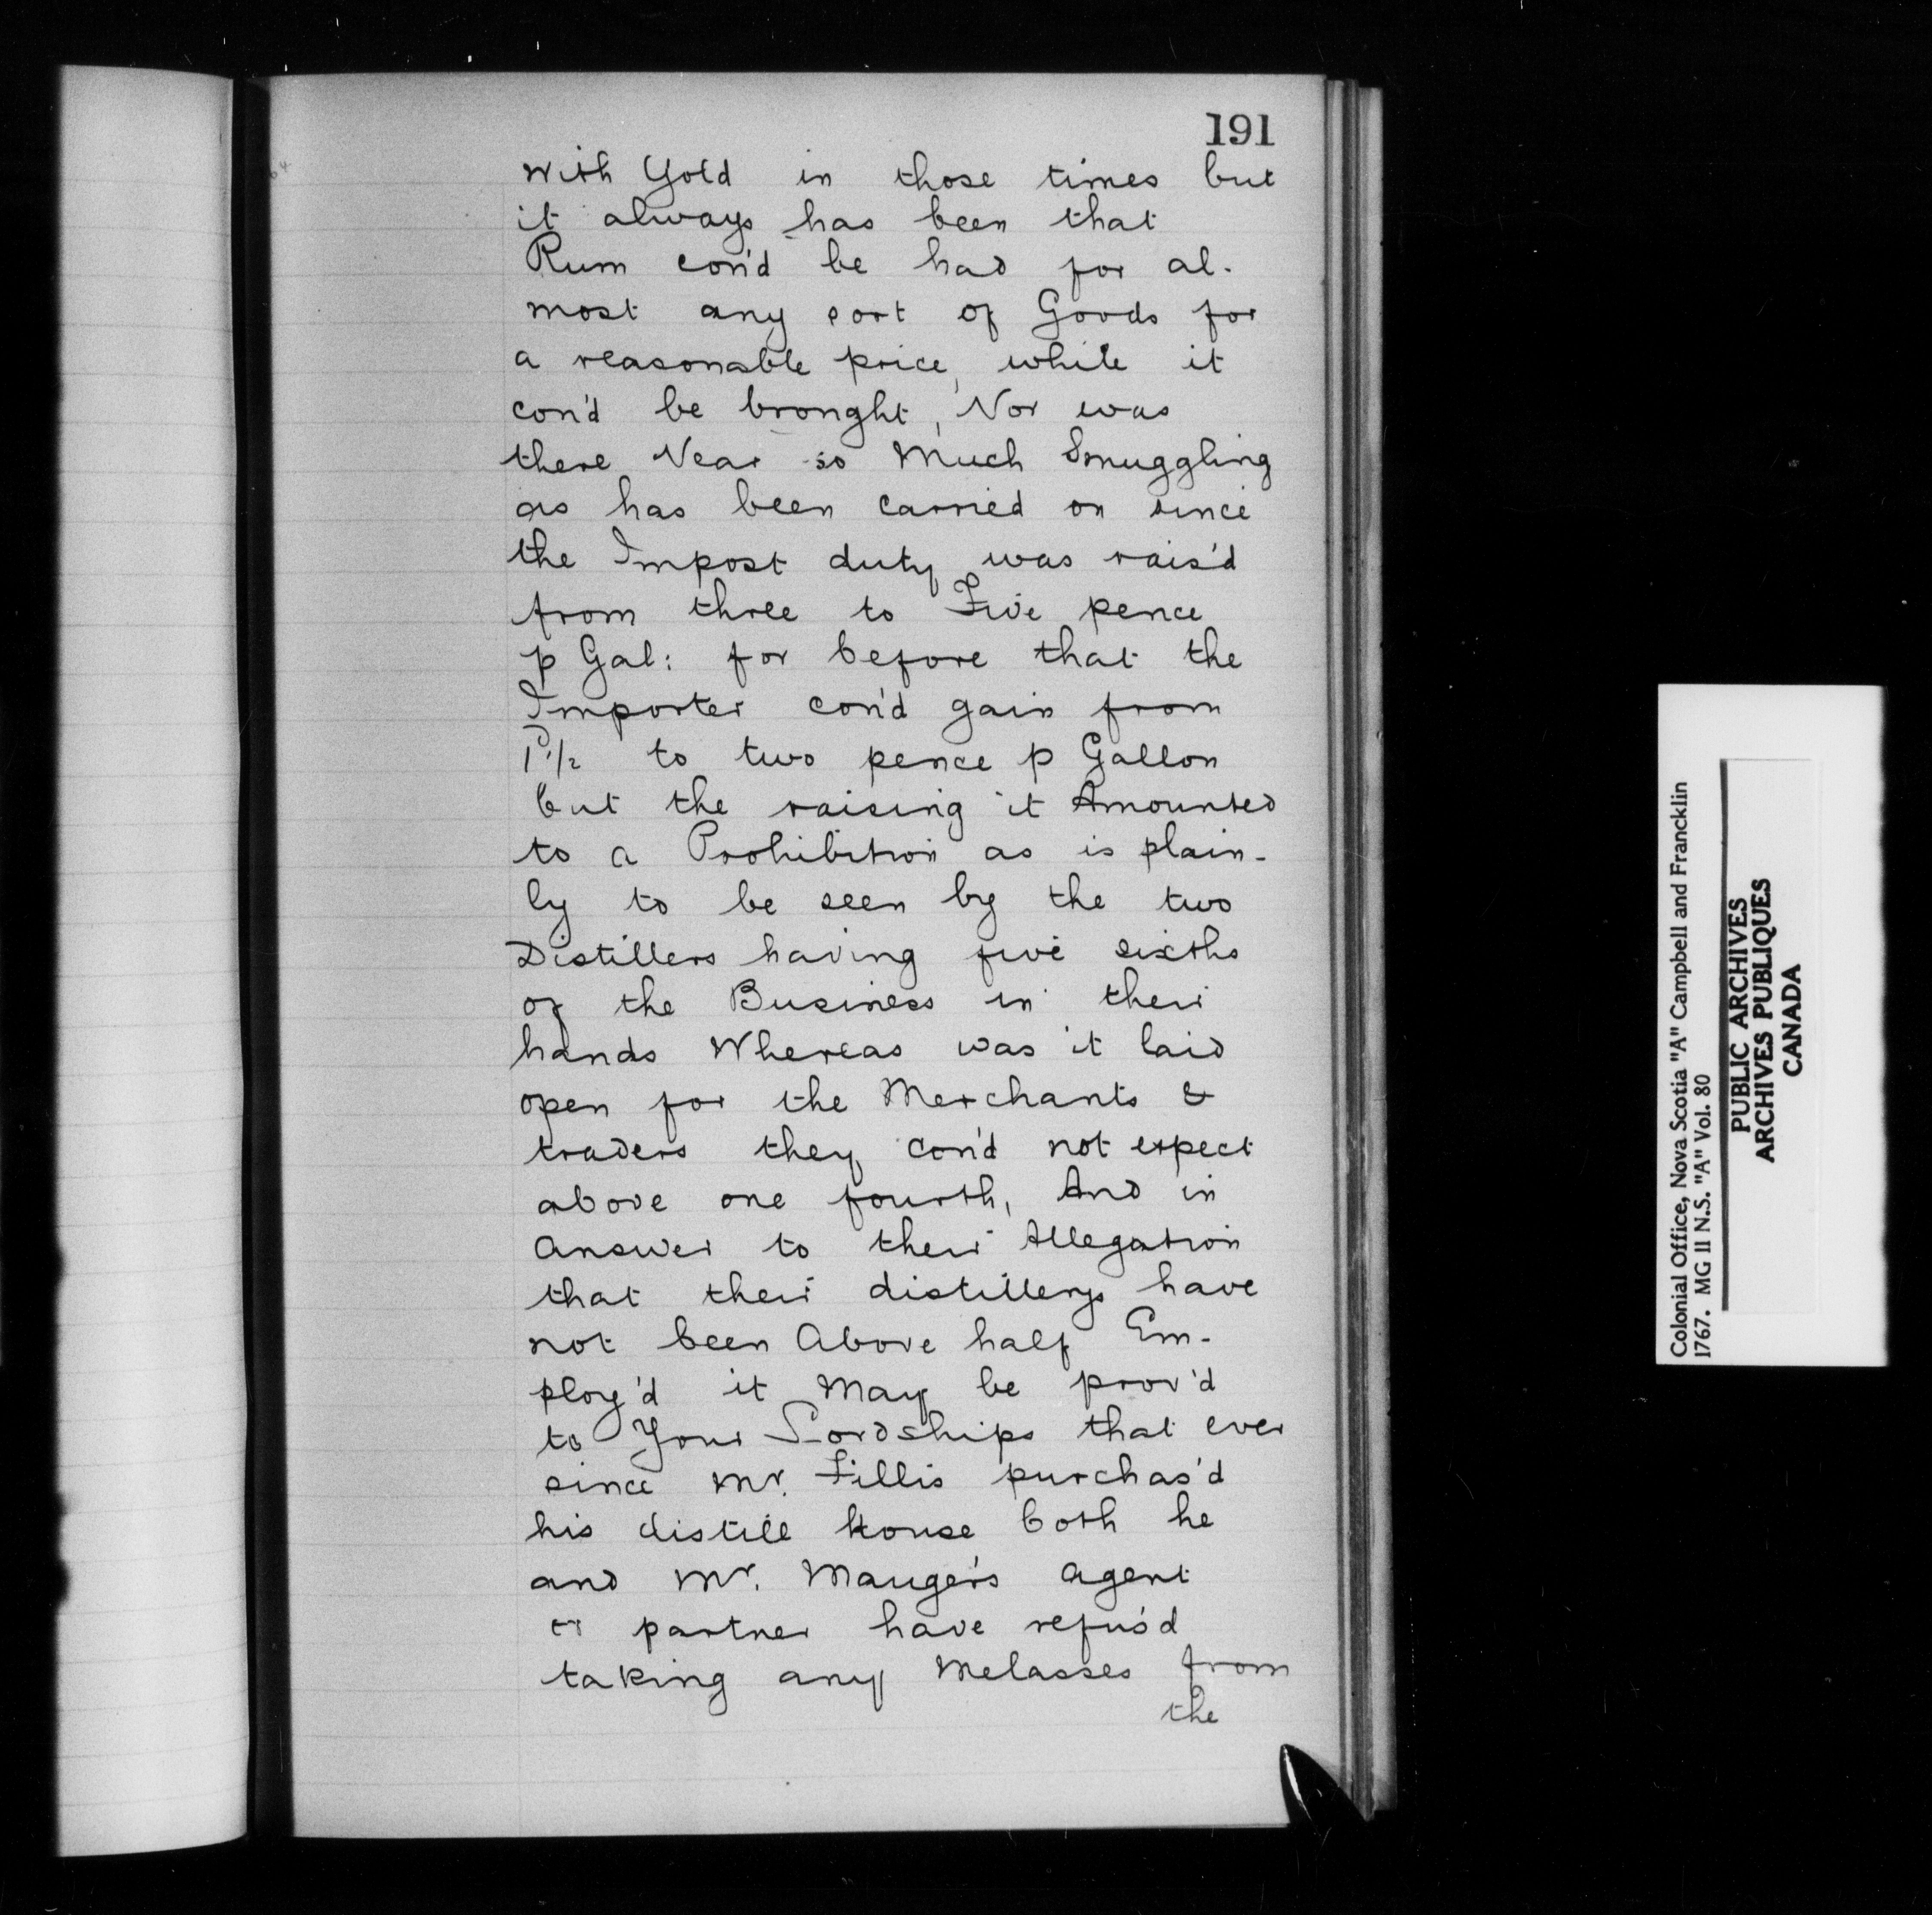 191
with Gold in those times but
it always has been that
Rum cou'd be had for al-
most any sort of Goods for
a reasonable price, while it
cou'd be brought, Nor was
there Near so Much Smuggling
as has been carried on since
the Impost duty was rais'd
from three to Five pence
p Gal: for before that the
Importer cou'd gain from
1½ to two pence p Gallon
but the raising it Amounted
to a Prohibition as is plain-
ly to be seen by the two
Distillers having five sixths
of the Business in their
hands Whereas was it laid
open for the Merchants &
traders they cou'd not expect
above one fourth, And in
Answer to their Allegation
that their distillerys have
not been Above half Em-
ploy'd it May be prov'd
to Your Lordships that ever
since Mr. Fillis purchas'd
his distill House both he
and Mr. Mauger's Agent
or partner have refus'd
taking any Melasses from
the
Colonial Office, Nova Scotia "A" Campbell and Francklin
1767. MG 11 N.S. "A" Vol. 80
PUBLIC ARCHIVES
ARCHIVES PUBLIQUES
CANADA